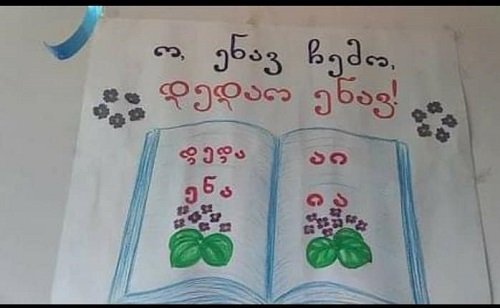 ო, ენავ ჩემო,
დედაო ენავ!
დედა
ენა
აი
ია